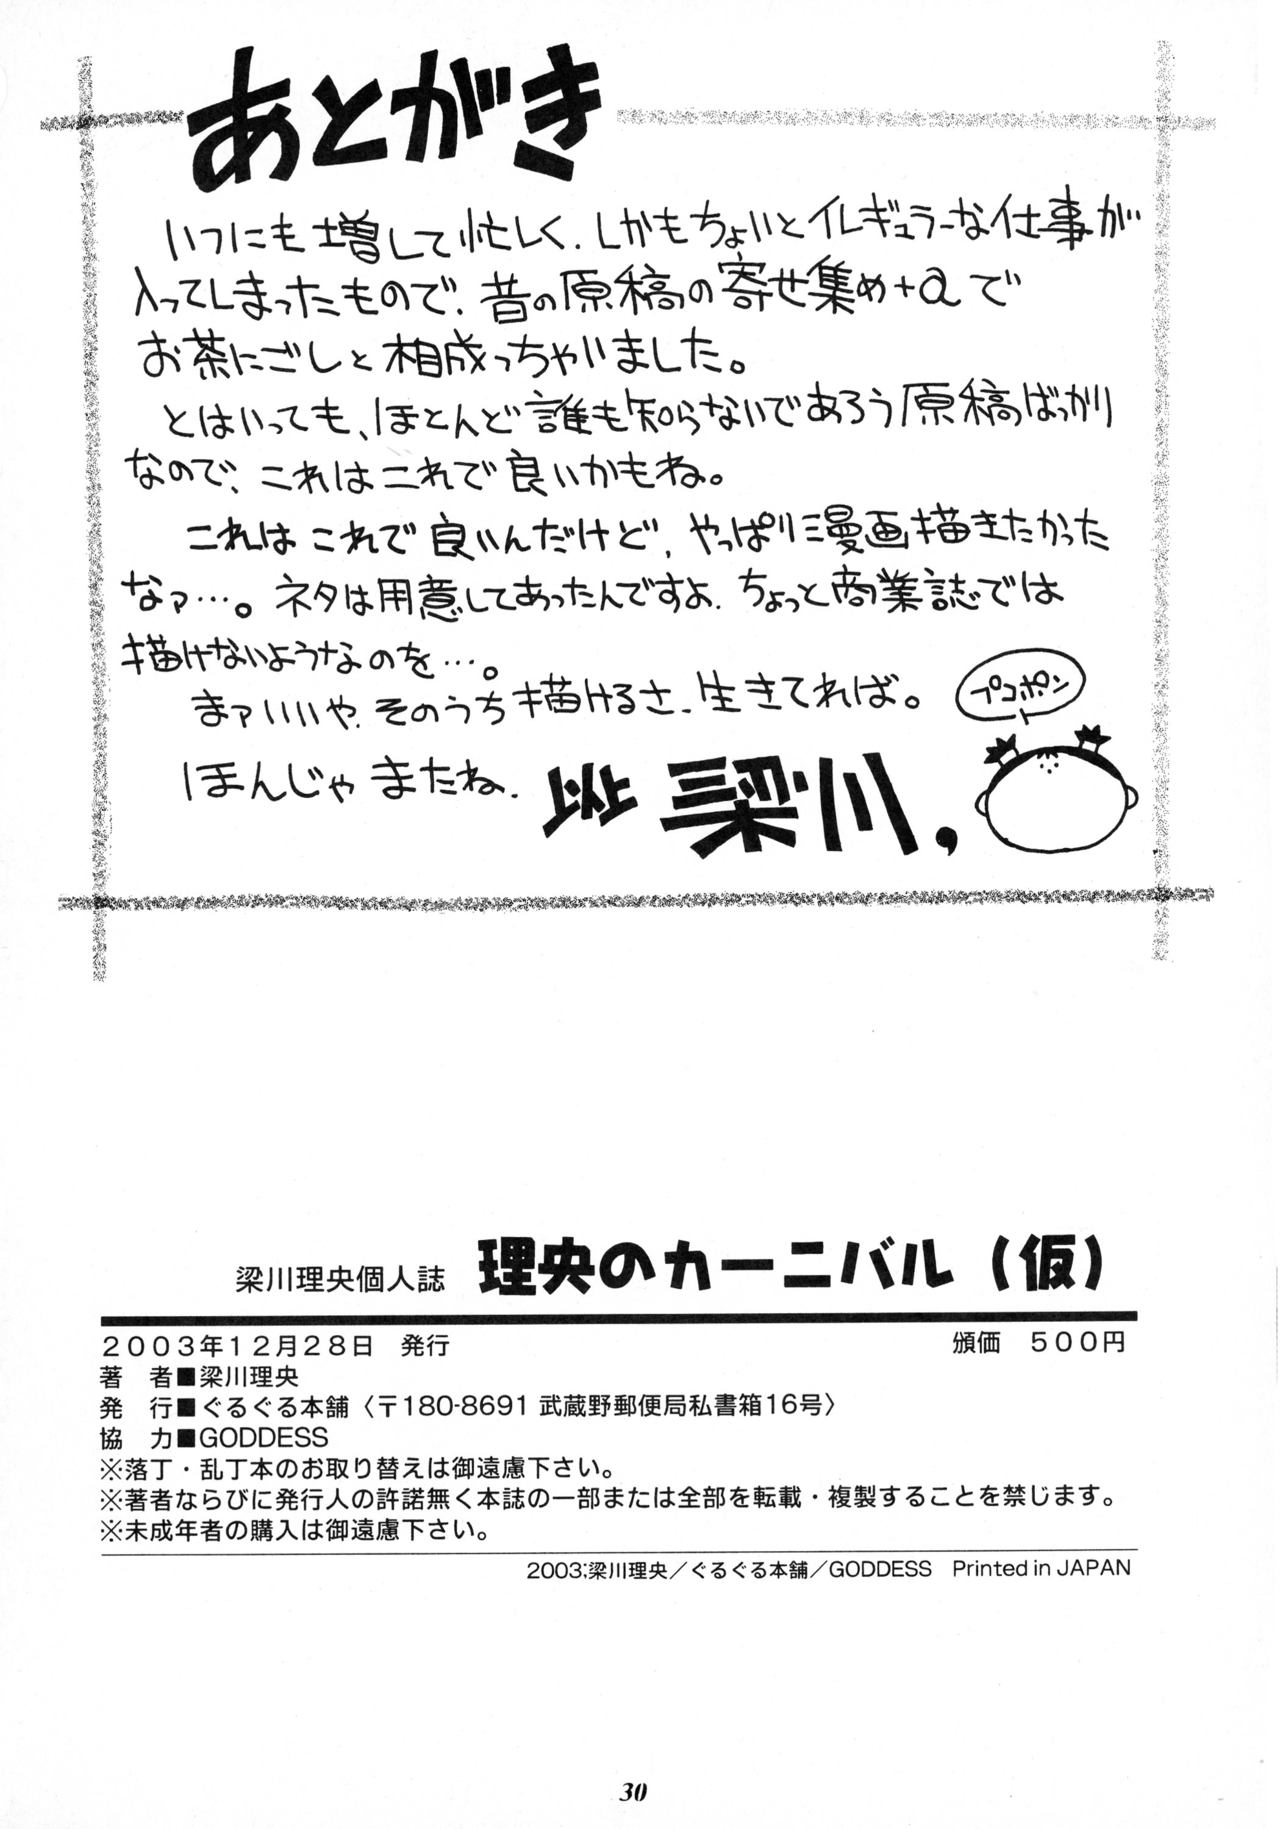 あとがき
いつにも増して忙しく、しかもちょいとイレギュラーな仕事が
入ってしまったもので、昔の原稿の寄せ集め+αで
お茶にごしと相成っちゃいました。
とはいっても、ほとんど誰も知らないであろう原稿ばっかり
なので、これはこれで良いかもね。
これはこれで良いんだけど、やっぱり漫画描きたかった
なァ…。ネタは用意してあったんですよ、ちょっと商業誌では
描けないようなのを…。
まァいいや、そのうち描けるさ、生きてれば。
プコポン
ほんじゃまたね。
梁川
梁川理央個人誌 理央のカーニバル(仮)
2003年12月28日 発行 頒価 500円
著 者■梁川理央
発 行■ぐるぐる本舗〈〒180-8691 武蔵野郵便局私書箱16号〉
協 力■GODDESS
※落丁・乱丁本のお取り替えは御遠慮下さい。
※著者ならびに発行人の許諾無く本誌の一部または全部を転載・複製することを禁じます。
※未成年者の購入は御遠慮下さい。
2003;梁川理央/ぐるぐる本舗/GODDESS Printed in JAPAN
30